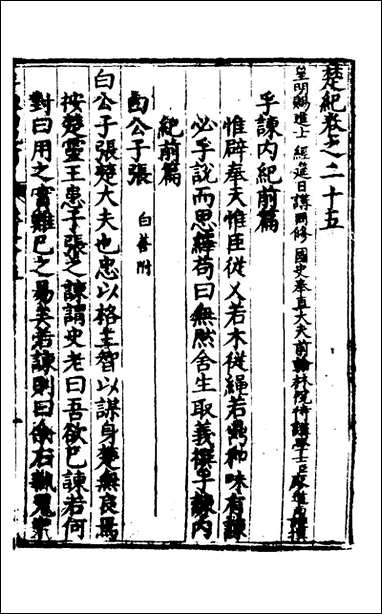 楚紀卷之二十五
皇明賜進士 經筵日講同修 國史奉直大夫前翰林院侍講學士臣廖道南謹撰
孚諫內紀前篇
惟辟奉天惟臣從乂若木從繩若鼎和味有諫
必孚說而思繹苟曰無然舍生取義撰孚諫內
紀前篇
白公子張 白善附
白公子張楚大夫也忠以格主智以謀身楚無良焉
按楚靈王患子張之諫謂史老曰吾欲已諫若何
對曰用之實難已之易矣若諫則曰余右執鬼